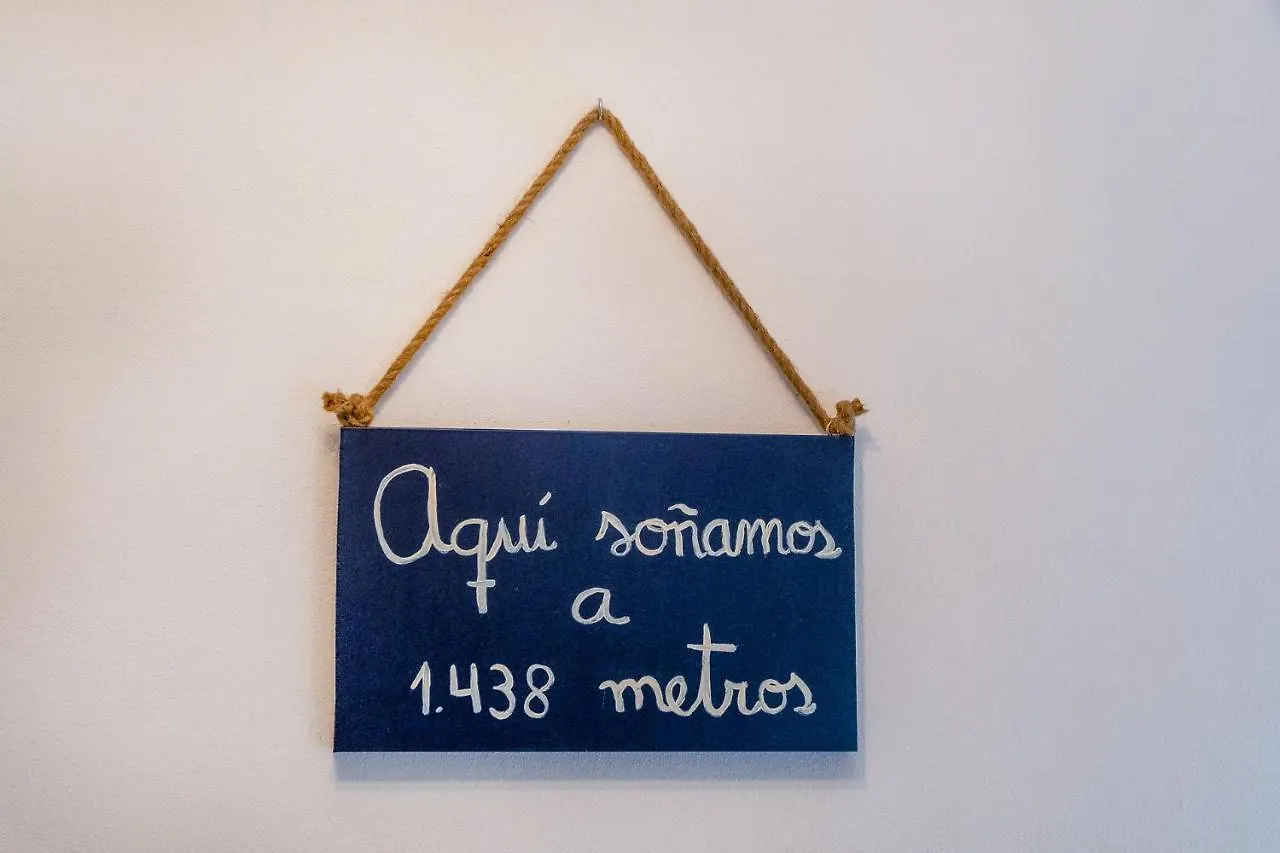 Aquí soñamos
a
1.438 metros